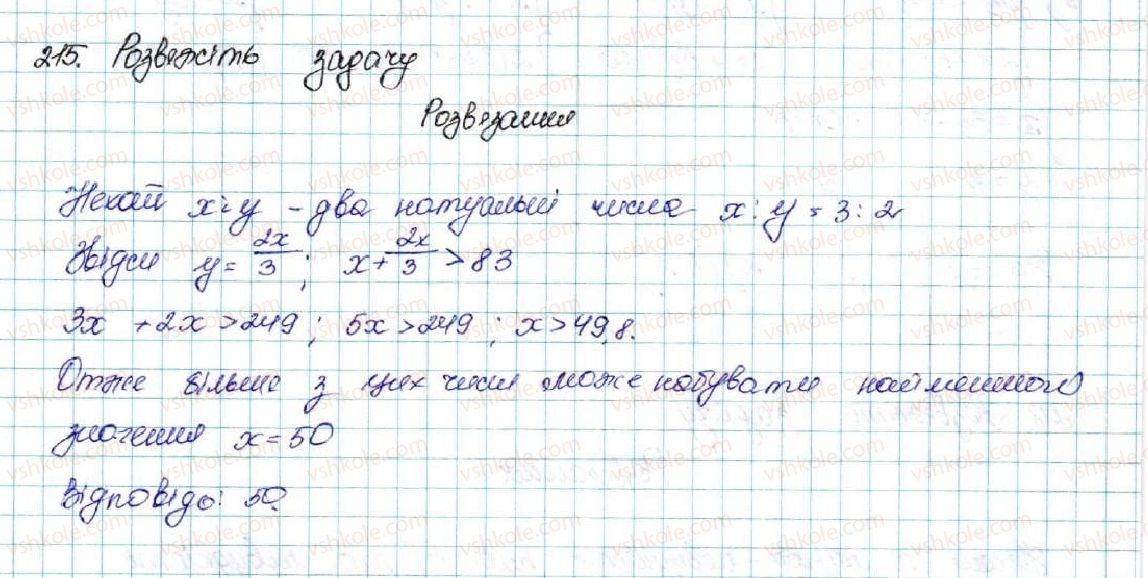 215. Розвяжіть задачу
Розвязання
Нехай x i y - два натуальні числа x : y = 3 : 2
Звідси y = 2x/3 ; x + 2x/3 > 83
3x + 2x > 249 ; 5x > 249 ; x > 49,8.
Отже більше з цих чисел може набувати найменшого
значення x = 50
Відповідь: 50.